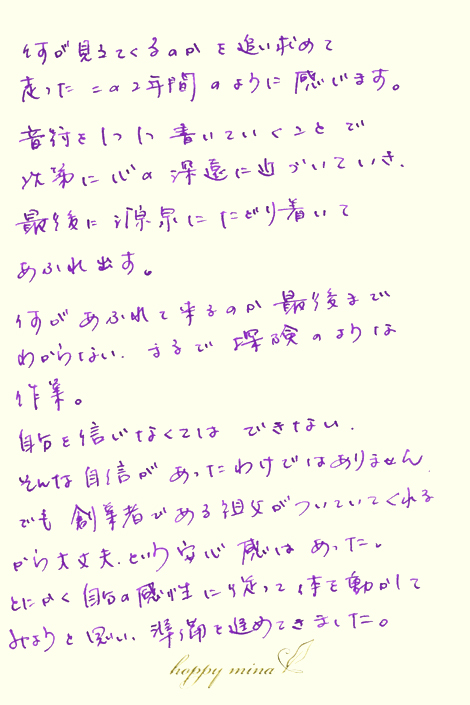 何が見えてくるのかを追い求めて
走ったこの2年間のように感じます。
音符を1つ1つ書いていくことで
次第に心の深遠に近づいていき、
最後に源泉にたどり着いて
あふれ出す。
何があふれて来るのか最後まで
わからない、まるで探険のような
作業。
自分を信じなくてはできない、
そんな自信があったわけではありません。
でも創業者である祖父がついていてくれる
から大丈夫、という安心感はあった。
とにかく自分の感性に従って体を動かして
みようと思い、準備を進めてきました。
happy mina